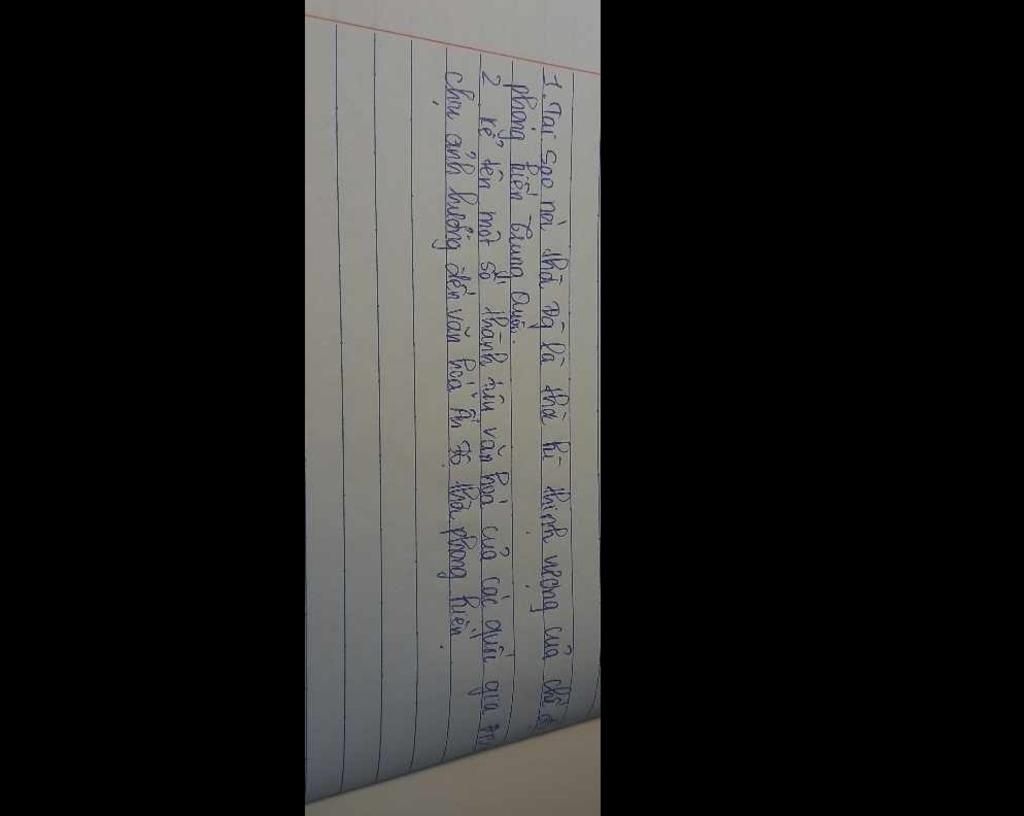 1. Tại sao nói thời Đg là thời kì thịnh vượng của chế đ
phong kiến Trung Quốc.
2 kể tên một số thành tựu văn hoá của các quốc gia
chịu ảnh hưởng đến văn hoá Ấn Độ thời phong kiến.